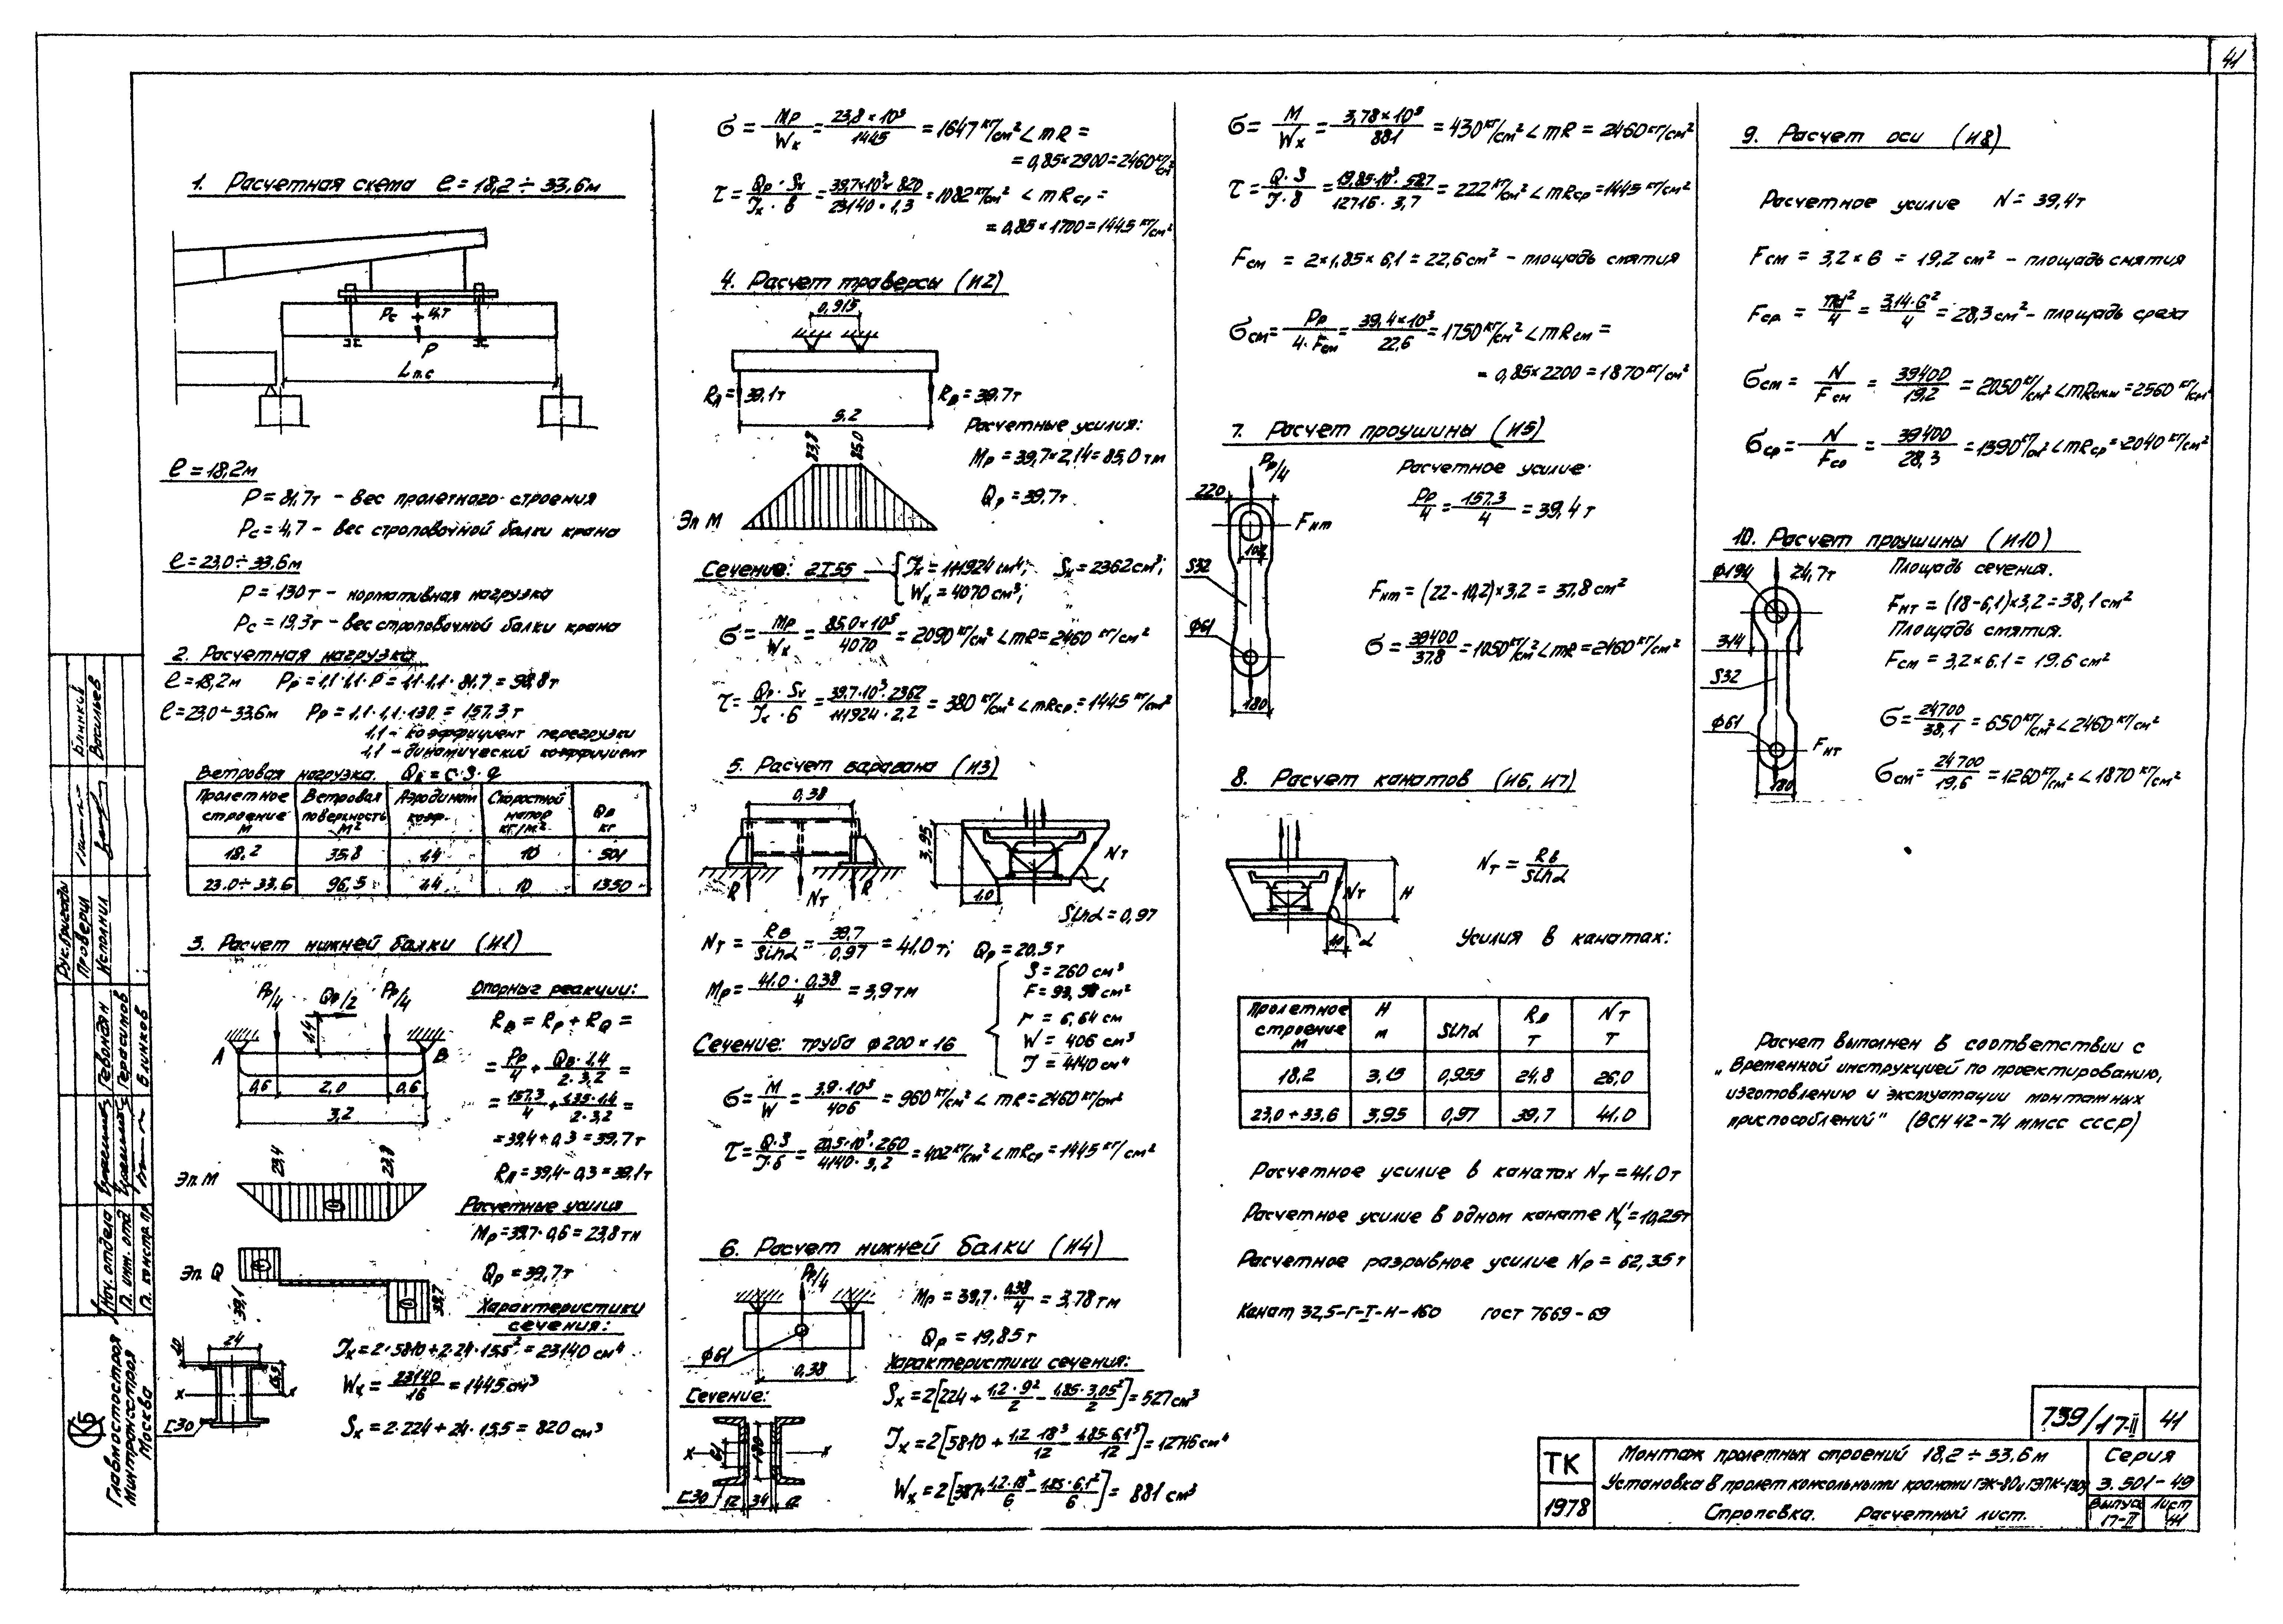 41
1. Расчетная схема ℓ = 18,2 ÷ 33,6 м
Pс 4,7
P
Lп.с
ℓ = 18,2 м
P = 81,7т – вес пролетного строения
Pс = 4,7 – вес строповочной балки крана
ℓ = 23.0 ÷ 33.6 м
P = 130т – нормативная нагрузка
Pс = 19,3т – вес строповочной балки крана
2. Расчетная нагрузка
ℓ = 18,2 м Pр = 1,1·1,1·P = 1,1·1,1·81,7 = 98,8т
ℓ = 23.0 ÷ 33.6 м Pр = 1,1·1,1·130 = 157.3 т
1,1 – коэффициент перегрузки
1,1 – динамический коэффициент
Ветровая нагрузка. Qв = c·S·q
Пролетное строение м | Ветровая поверхность м² | Аэродинам коэф. | Скоростной напор кг/м² | Qр кг
18.2 | 35.8 | 1,4 | 10 | 501
23.0 ÷ 33.6 | 96,5 | 1,4 | 10 | 1350
3. Расчет нижней балки (И1)
Pр/4 Qр/2 Pр/4
1,4
A B
0,6 2,0 0,6
3,2
Опорные реакции:
RB = RP + RQ =
= Pр/4 + Qв·1,4/2·3,2 =
= 157.3/4 + 1,35·1,4/2·3,2 =
= 39,4 + 0,3 = 39,7т
RA = 39,4 – 0,3 = 39,1т
Эп. М
23,4 23,8
Расчетные усилия
Mр = 39,7·0,6 = 23,8 тм
Qр = 39,7т
Эп. Q
39,1 39,7
Характеристики сечения:
Jx = 2·5810 + 2·24·15,5² = 23140 см⁴
Wx = 23140/16 = 1445 см³
Sx = 2·224 + 24·15,5 = 820 см³
10 24 15,5
x x
[30
σ = Mр/Wx = 23,8×10⁵/1445 = 1647 кг/см² < mR =
= 0,85×2900 = 2460 кг/см²
τ = Qр·Sx/Jx·δ = 39,7×10³×820/23140·1,3 = 1082 кг/см² < mRср =
= 0,85×1700 = 1445 кг/см²
4. Расчет траверсы (И2)
0,915
RA = 39,1т RB = 39,7т
5,2
23,8 85,0
Эп М
Расчетные усилия:
Mр = 39,7×2,14 = 85,0 тм
Qр = 39,7т
Сечение: 2I55 Jx = 111924 см⁴; Sx = 2362 см³;
Wx = 4070 см³;
σ = Mр/Wx = 85,0×10⁵/4070 = 2090 кг/см² < mR = 2460 кг/см²
τ = Qр·Sx/Jx·δ = 39,7·10³·2362/111924·2,2 = 380 кг/см² < mRср = 1445 кг/см²
5. Расчет барабана (И3)
0,38
R NT R
3,95
1,0
NT α
Sinα = 0,97
NT = RB/Sinα = 39,7/0,97 = 41.0 т; Qр = 20,5т
Mр = 41.0·0,38/4 = 3,9 тм
S = 260 см³
F = 93,98 см²
r = 6,64 см
W = 406 см³
J = 4140 см⁴
Сечение: труба φ200×16
σ = M/W = 3,9·10⁵/406 = 960 кг/см² < mR = 2460 кг/см²
τ = Q·S/J·δ = 20,5·10³·260/4140·3,2 = 402 кг/см² < mRср = 1445 кг/см²
6. Расчет нижней балки (И4)
Pр/4
φ61
0,38
Mр = 39,7·0,38/4 = 3,78 тм
Qр = 19,85т
Характеристики сечения:
Sx = 2[224 + 1,2·9²/2 – 1,85·3,05²/2] = 527 см³
Jx = 2[5810 + 1,2·18³/12 – 1,85·6,1³/12] = 12716 см⁴
Wx = 2[387 + 1,2·18²/6 – 1,85·6,1²/6] = 881 см³
Сечение:
x x
61 180
[30 12 34 12
σ = M/Wx = 3,78×10⁵/881 = 430 кг/см² < mR = 2460 кг/см²
τ = Q·S/J·δ = 19,85·10³·527/12716·3,7 = 222 кг/см² < mRср = 1445 кг/см²
Fсм = 2×1,85×6,1 = 22,6 см² – площадь смятия
σсм = Pр/4·Fсм = 39,4×10³/22,6 = 1750 кг/см² < mRсм =
= 0,85×2200 = 1870 кг/см²
7. Расчет проушины (И5)
Pр/4
220
Fнт
102
S32
φ61
180
Расчетное усилие
Pр/4 = 157.3/4 = 39,4 т
Fнт = (22 – 10,2)×3,2 = 37,8 см²
σ = 39400/37,8 = 1050 кг/см² < mR = 2460 кг/см²
8. Расчет канатов (И6, И7)
NT H
α
NT = RB/Sinα
Усилия в канатах:
Пролетное строение м | H м | Sinα | Rр т | NT т
18,2 | 3,15 | 0,955 | 24,8 | 26,0
23,0 ÷ 33.6 | 3,95 | 0,97 | 39,7 | 41.0
Расчетное усилие в канатах NT = 41.0т
Расчетное усилие в одном канате N¹т = 10,25т
Расчетное разрывное усилие Nр = 62,35т
Канат 32,5–Г–I–Н–160 ГОСТ 7669–69
9. Расчет оси (И8)
Расчетное усилие N = 39,4т
Fсм = 3,2×6 = 19,2 см² – площадь смятия
Fср = πd²/4 = 3,14·6²/4 = 28,3 см² – площадь среза
σсм = N/Fсм = 39400/19,2 = 2050 кг/см² < mRсм = 2560 кг/см²
σср = N/Fср = 39400/28,3 = 1390 кг/см² < mRср = 2040 кг/см²
10. Расчет проушины (И10)
φ194 24,7т
314
S32
φ61
Fнт
180
Площадь сечения.
Fнт = (18–6,1)×3,2 = 38,1 см²
Площадь смятия.
Fсм = 3,2×6.1 = 19.6 см²
σ = 24700/38,1 = 650 кг/см² < 2460 кг/см²
σсм = 24700/19,6 = 1260 кг/см² < 1870 кг/см²
Расчет выполнен в соответствии с
„Временной инструкцией по проектированию,
изготовлению и эксплуатации монтажных
приспособлений" (ВСН 42–74 ММСС СССР)
739/17-II 41
ТК
1978
Монтаж пролетных строений 18,2 ÷ 33.6 м
Установка в пролет консольными кранами ГЭК-80 и ГЭПК-130у
Строповка. Расчетный лист.
Серия
3.501–49
Выпуск 17-II
Лист 41
Рук. бригады Блинков
Проверил
Исполнил Васильев
Нач. отдела Гевондян
Гл. инж. отд Герасимов
Гл. констр. пр. Блинков
КБ
Главмостостроя
Минтрансстроя
Москва